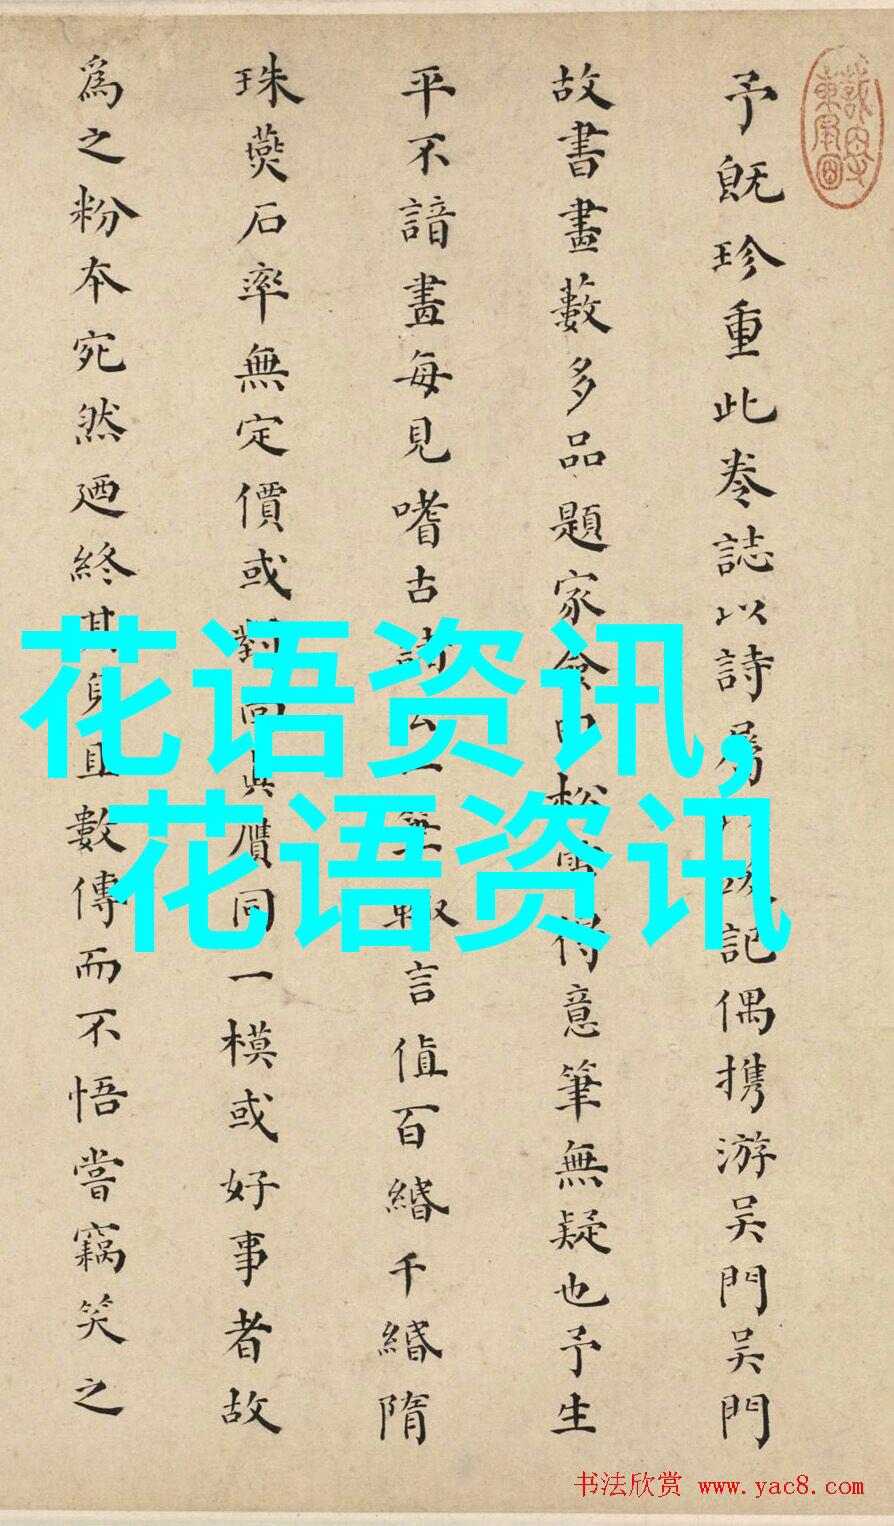 予既珍重此卷誌以詩屬記偶携游吳門吳門
故書畫藪多品題家僉曰松雪得意筆無疑也予生
平不諳畫每見嗜古詩輙言值百緡千緡隋
珠燕石率無定價或對真贋同一模或好事者故
爲之粉本宛然迺終其身且數傳而不悟嘗竊笑之
花语资讯,
花语资讯
书法欣赏 www.yac8.com